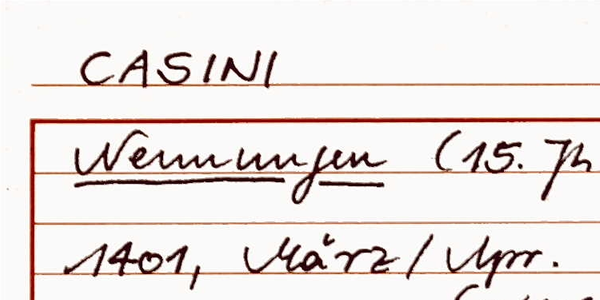 CASINI
Nennungen (15. Jh
1401, März/Apr.